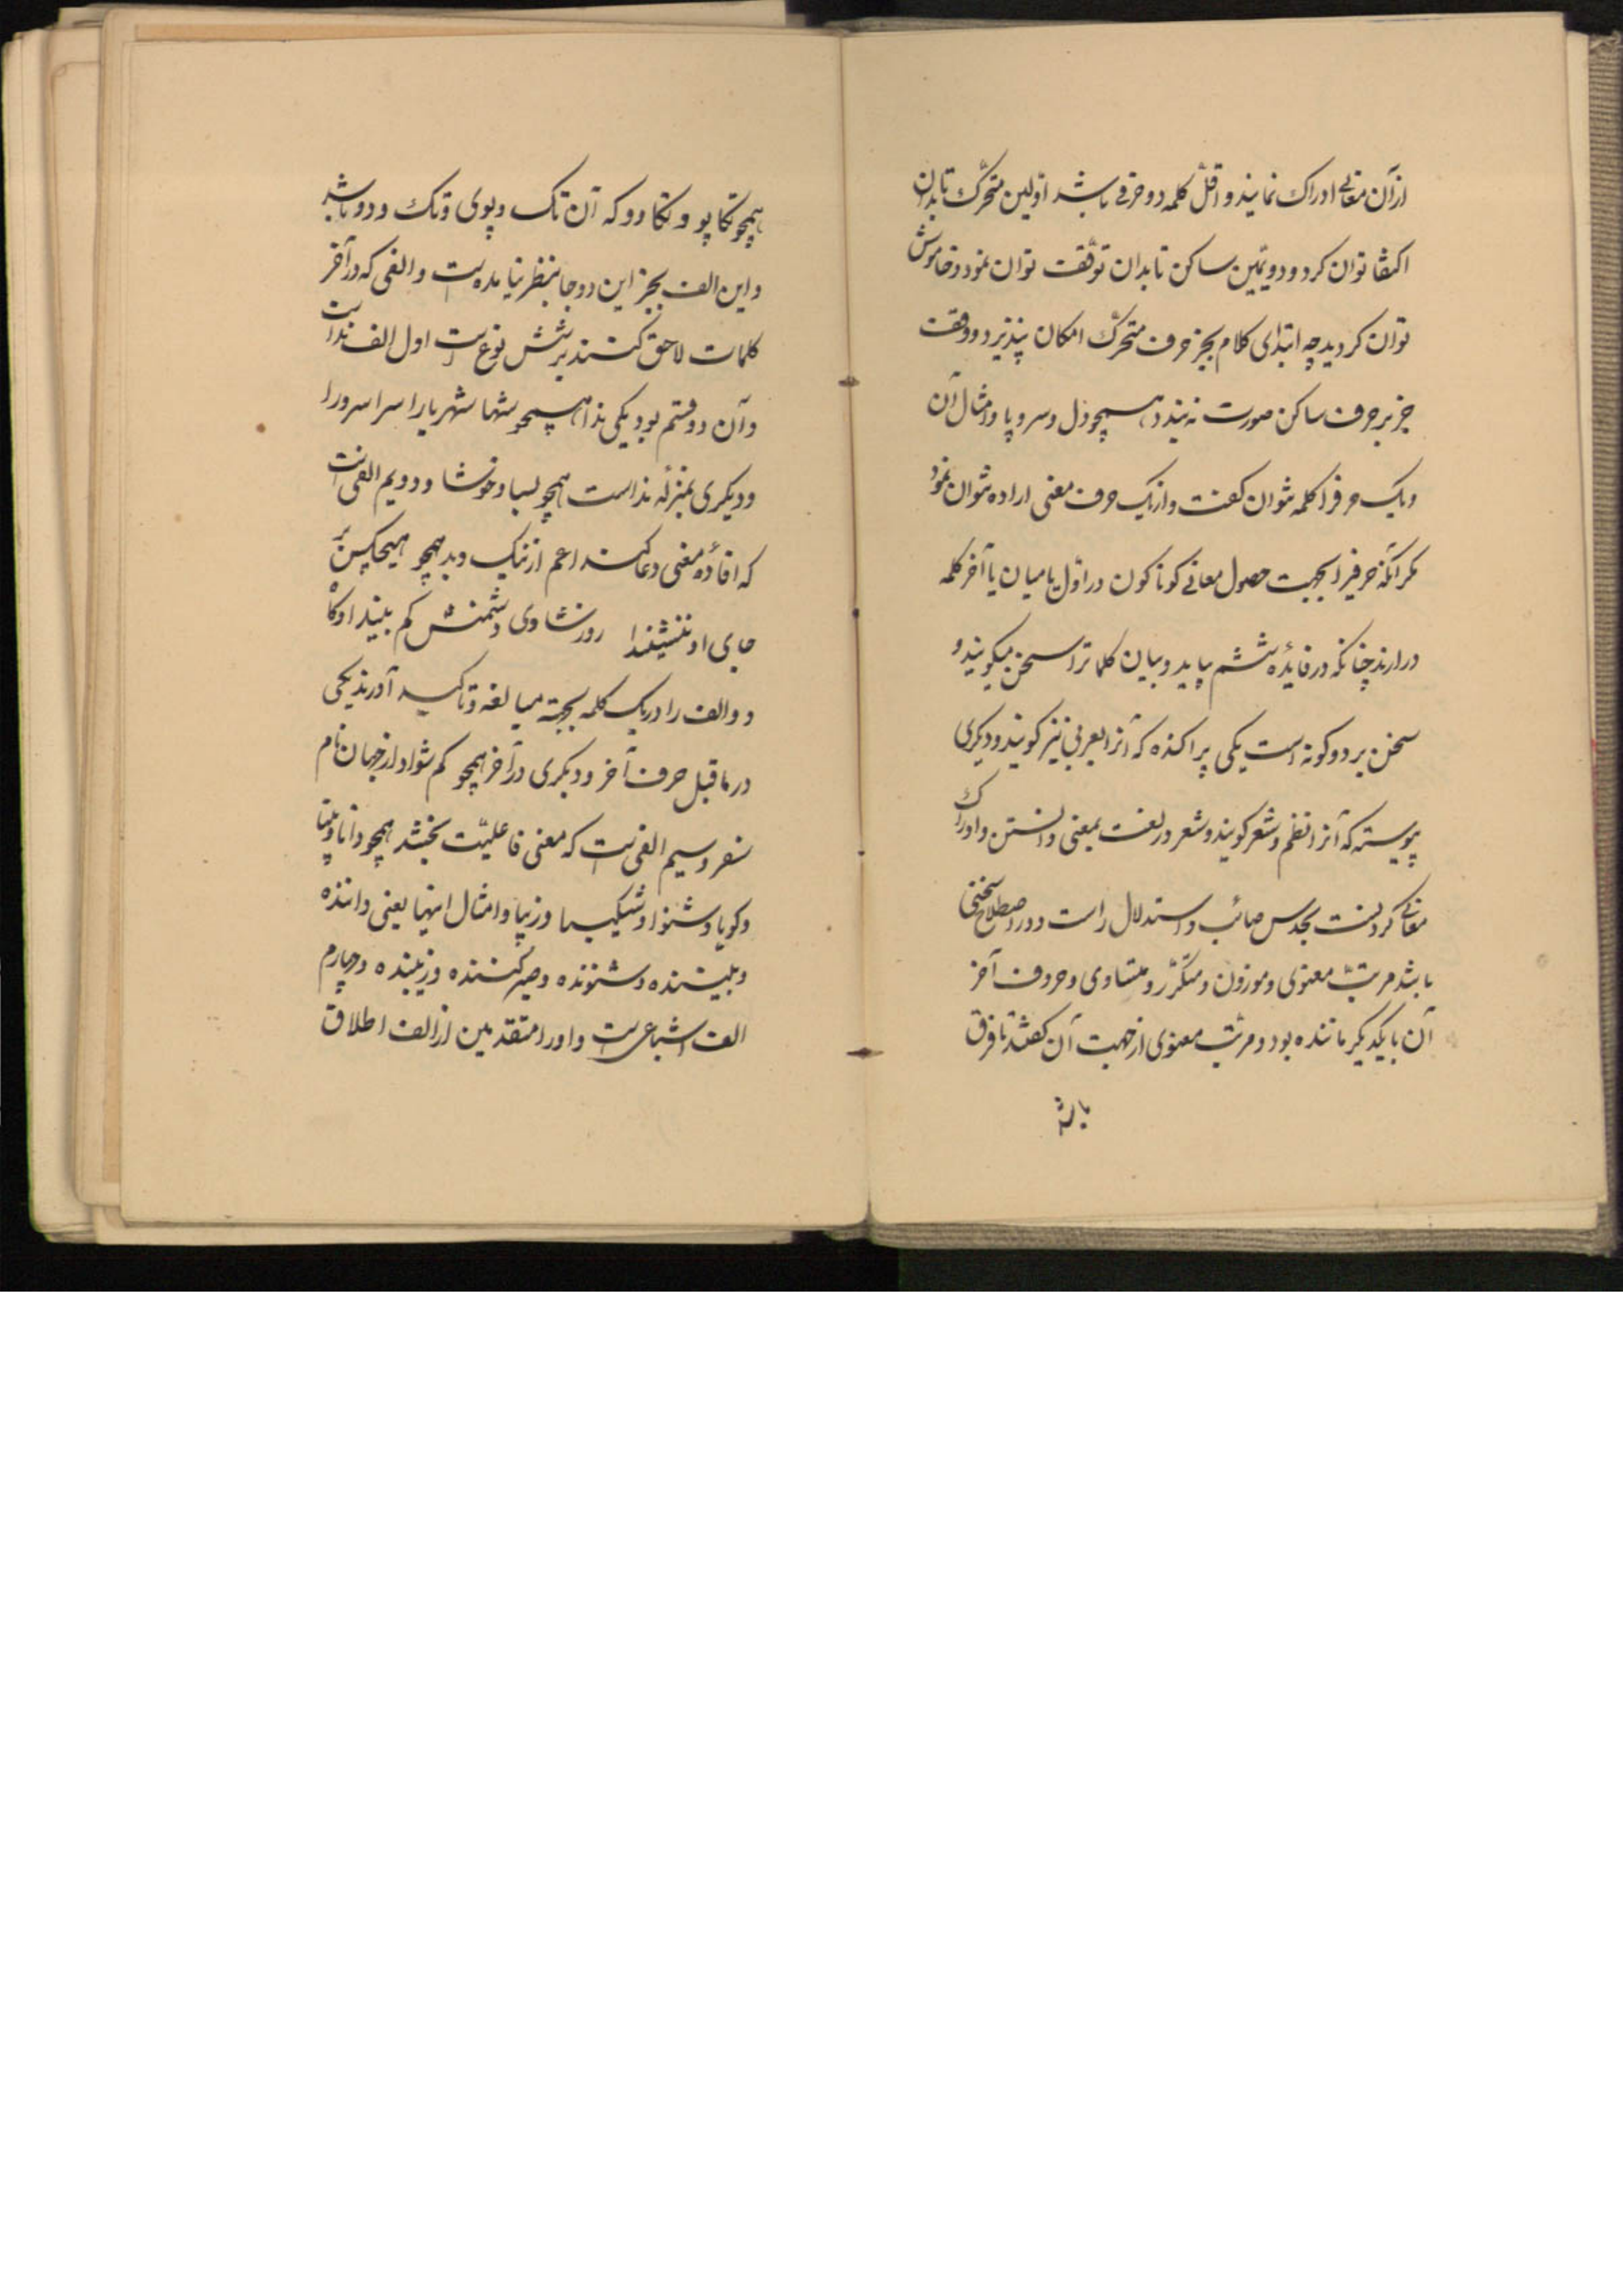 از آن معانی ادراک نمایند و اقلّ کلمه دو حرفی باشد اوّلین متحرّک تا بدان
اکتفا توان کرد و دویمین ساکن تا بدان توقّف توان نمود و خاموش
توان کردید چه ابتدای کلام بجز حرف متحرّک امکان پذیرد و وقف
جز بر حرف ساکن صورت نه بندد همچو دل و سر و پا و امثال آن
و یک حرفرا کلمه نتوان کفت و از یک حرف معنی اراده نتوان نمود
مکر آنکه حرفیرا بجهت حصول معانی کوناکون در اوّل یا میان یا آخر کلمه
درارند چنانکه در فایٔده ششم بیاید و بیان کلماترا سخن میکویند و
سخن بر دو کونه است یکی پراکنده که آنرا بعربی نثر کویند و دیکری
پیوسته که آنرا نظم و شعر کویند و شعر در لغت بمعنی دانستن و ادراک
معانی کردنست بحدس صائب و استدلال راست و در اصطلاح سخنی
باشد مرتب معنوی و موزون و متکرّر و متساوی و حروف آخر
آن بایکدیکر ماننده بود و مرتب معنوی از جهت آن کفتند تا فرق
باشد
همچو تکاپو و تکادو که آن تک و پوی و تک و دو باشد
و این الف بجز این دو جا بنظر نیامده است و الفی که در آخر
کلمات لاحق کنند بر شش نوع است اول الف نداست
و آن دو قسم بود یکی ندا همچو شها شهریارا سرا سرورا
و دیکری بمنزله نداست همچو بسا و خوشا و دویم الفی است
که افاده معنی دعا کند اعم از نیک و بد همچو هیچکس بَر
جای او ننشیندا روز شادی دشمنش کم بیندا و کاه
دو الف را در یک کلمه بجهته مبالغه و تاکید آورند یکی
در ماقبل حرف آخر و دیکری در آخر همچو کم شوادا از جهان نام
سفر و سیم الفی است که معنی فاعلیّت بخشد همچو دانا و بینا
و کویا و شنوا و شکیبا و زیبا و امثال اینها یعنی داننده
و بیننده و شنونده و صبر کننده و زیبنده و چهارم
الف اشباع است و او را متقدمین از الف اطلاق